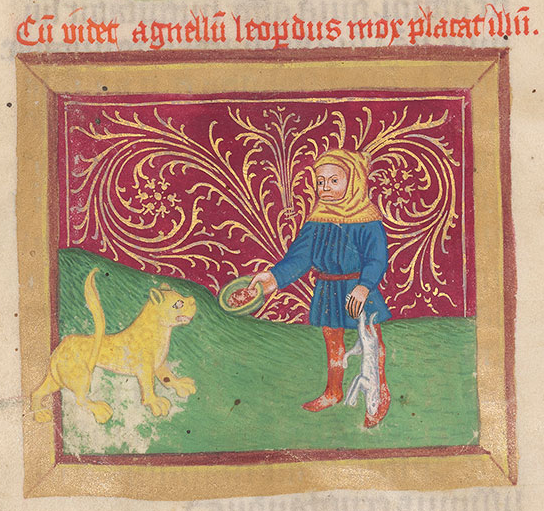 Cū videt agnellū leopdus mox placat illū.